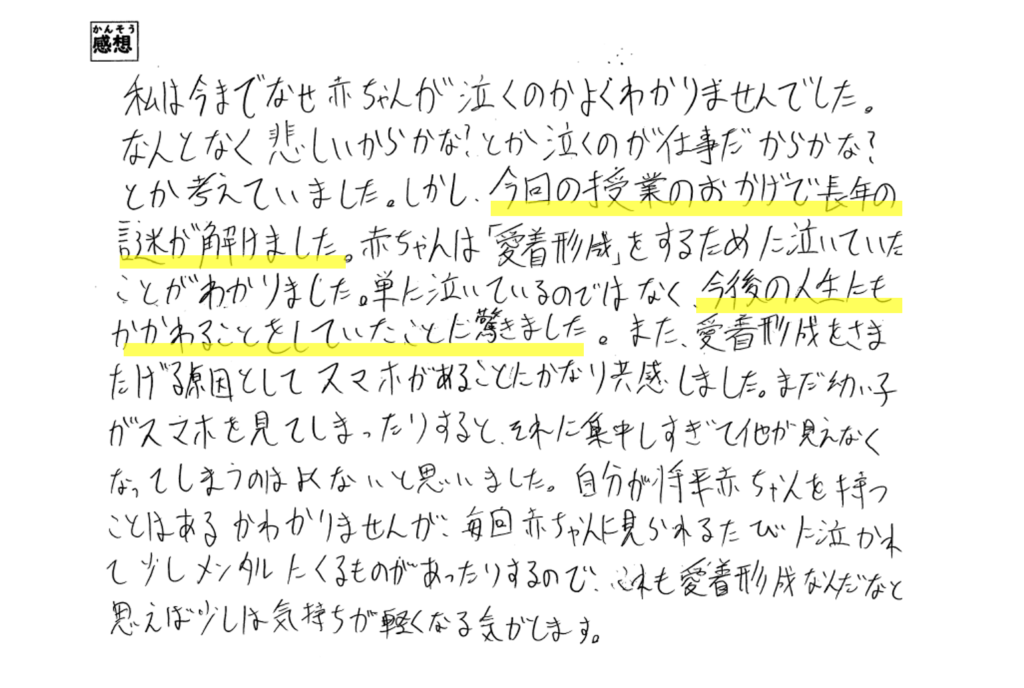 かんそう
感想
私は今までなぜ赤ちゃんが泣くのかよくわかりませんでした。
なんとなく悲しいからかな?とか泣くのが仕事だからかな?
とか考えていました。しかし、今回の授業のおかげで長年の
謎が解けました。赤ちゃんは「愛着形成」をするために泣いていた
ことがわかりました。単に泣いているのではなく、今後の人生にも
かかわることをしていたことに驚きました。また、愛着形成をさま
たげる原因としてスマホがあることにかなり共感しました。まだ幼い子
がスマホを見てしまったりすると、それに集中しすぎて他が見えなく
なってしまうのはよくないと思いました。自分が将来赤ちゃんを持つ
ことはあるかわかりませんが、毎回赤ちゃんに見られるたびに泣かれ
て少しメンタルにくるものがあったりするので、これも愛着形成なんだなと
思えば少しは気持ちが軽くなる気がします。